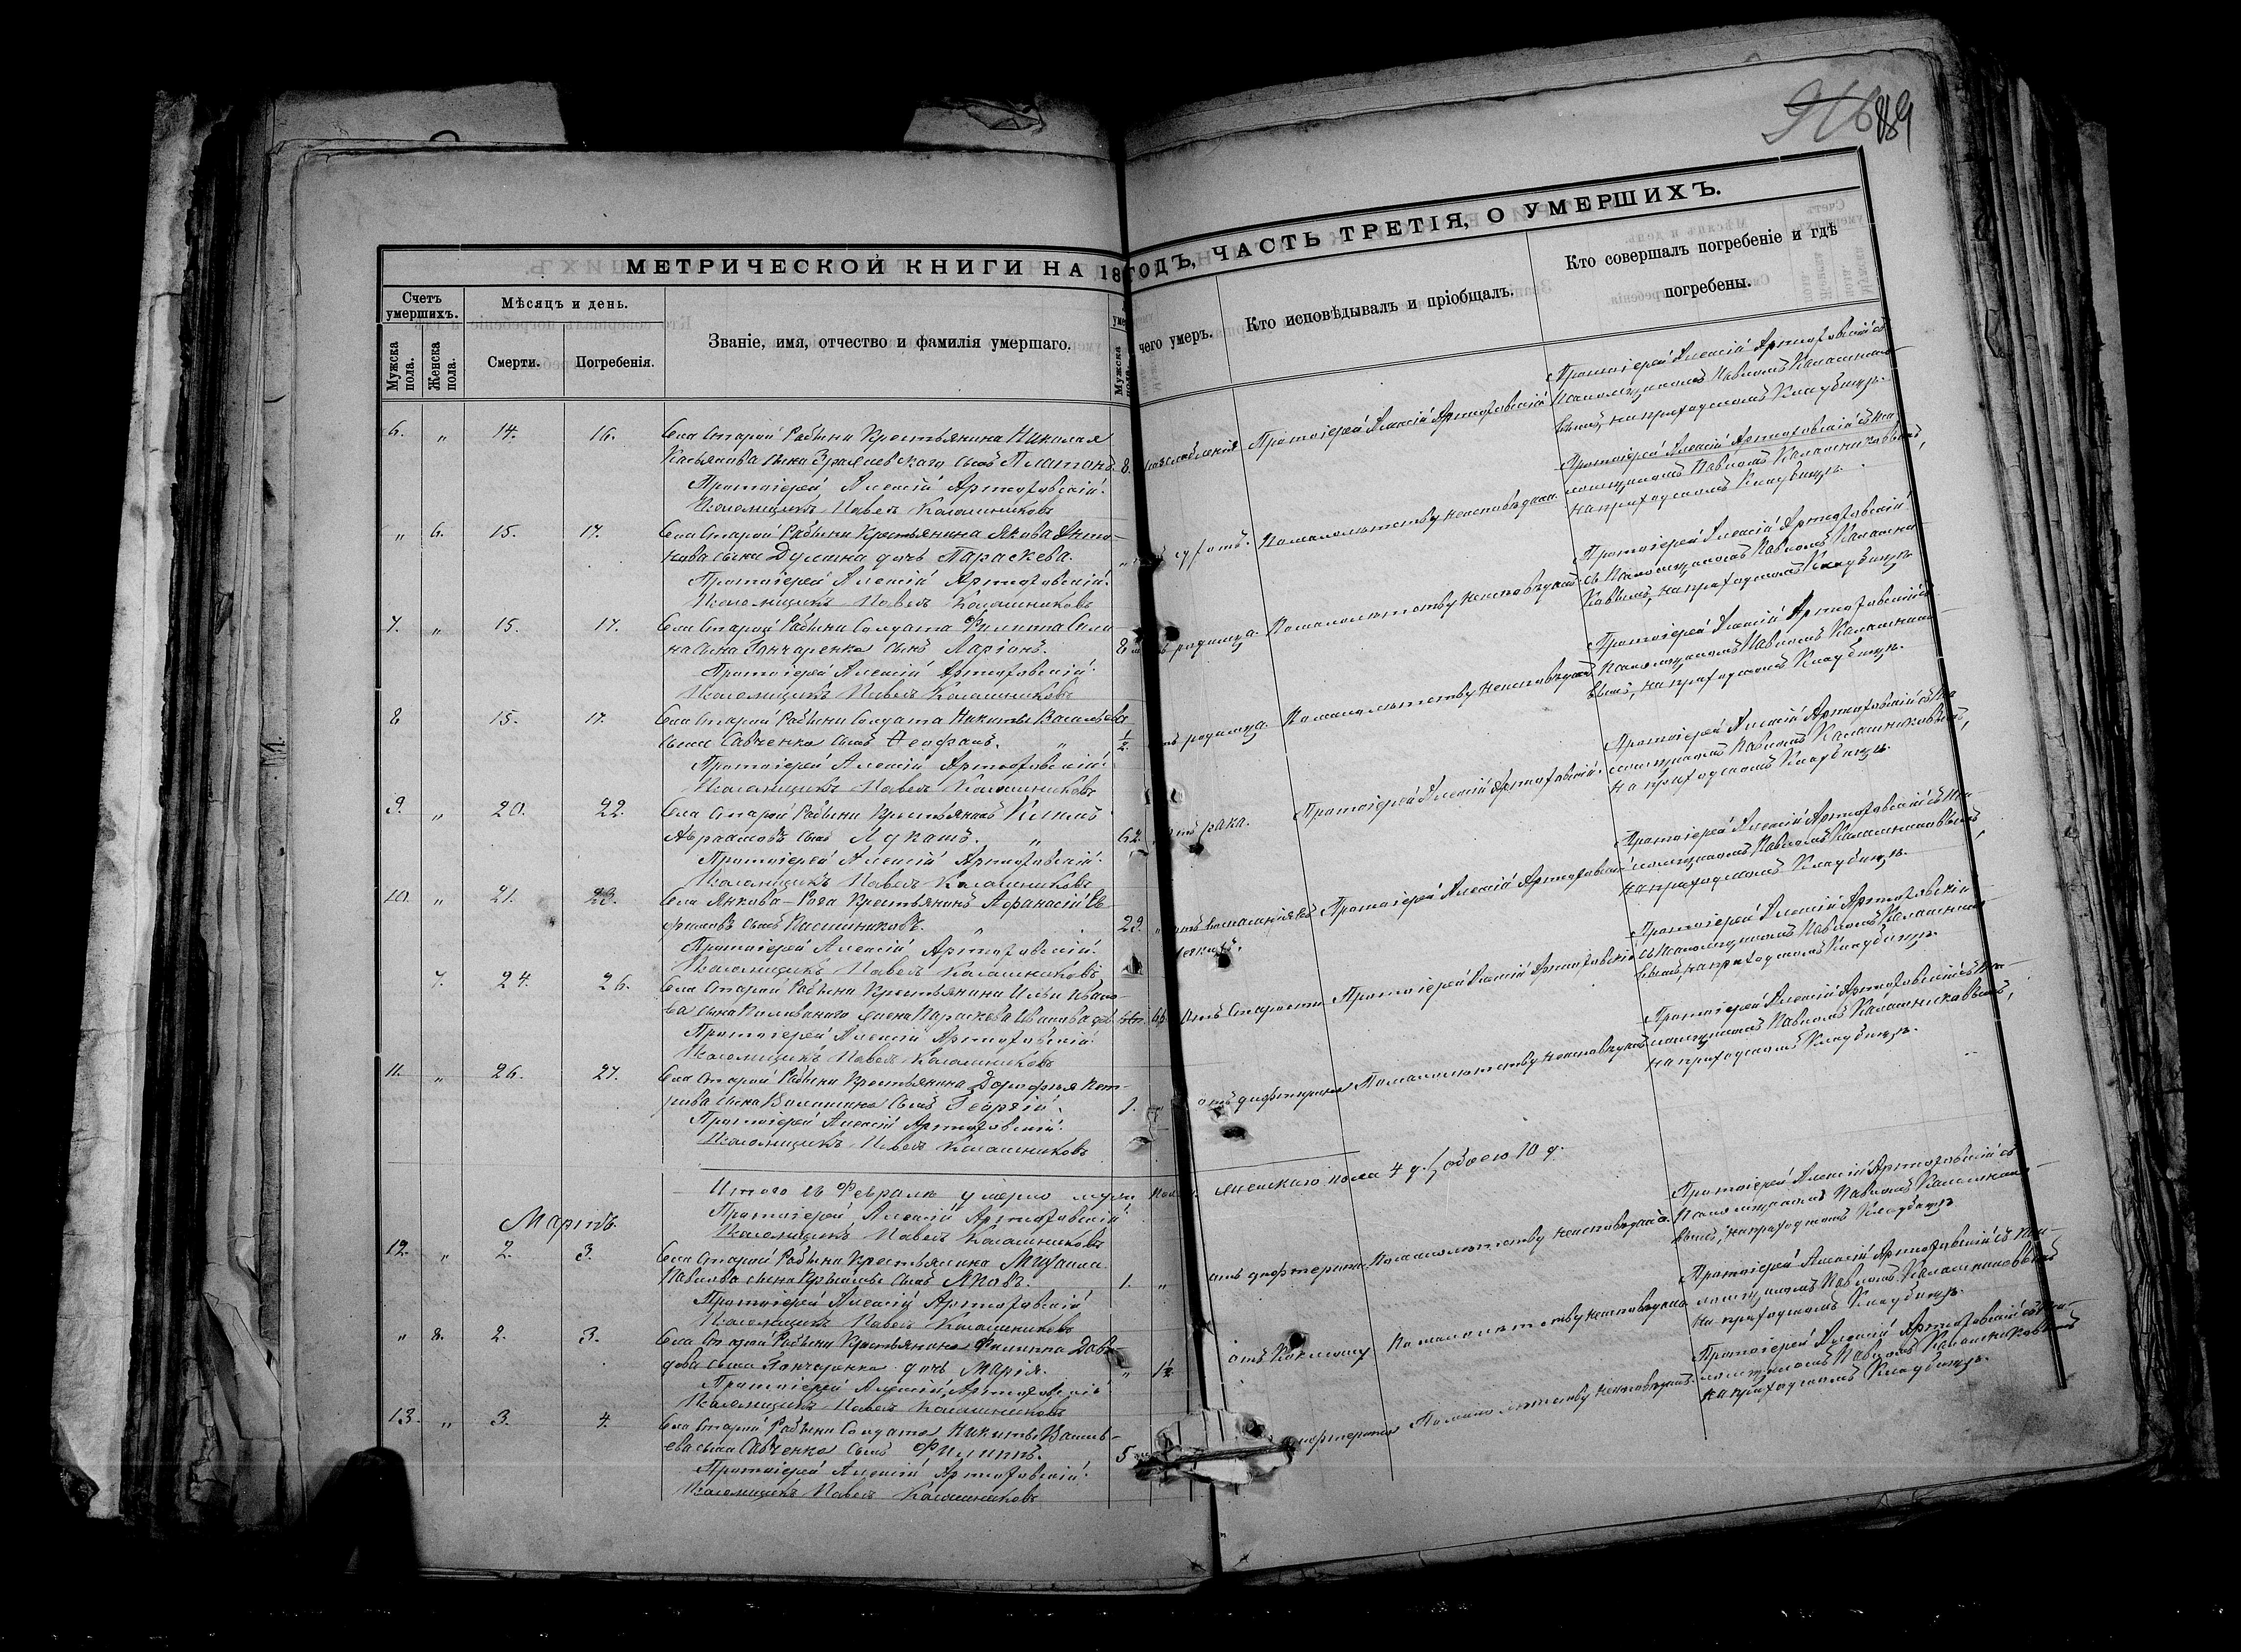 916 89
МЕТРИЧЕСКОЙ КНИГИ НА 18
ГОДЪ, ЧАСТЬ ТРЕТІЯ, О УМЕРШИХЪ.
Счетъ умершихъ.
Мужска пола.
Женска пола.
Мѣсяцъ и день.
Смерти.
Погребенія.
Званіе, имя, отчество и фамилія умершаго.
Мужска
чего умеръ.
Кто исповѣдывалъ и пріобщалъ.
Кто совершалъ погребеніе и гдѣ
погребены.
6. " 14. 16. Села Старой Рябыни Крестьянина Николая
сына сынъ Платонъ. 8.
Протоіерей Алексій Артюховскій.
Псаломщикъ Павелъ Калашниковъ
Протоіерей Алексій Артюховскій
Протоіерей Алексій Артюховскій съ
Псаломщикомъ Павломъ Калашнико-
вымъ, на приходскомъ Кладбищѣ.
" 6. 15. 17. Села Старой Рябыни Крестьянина Якова Анто-
нова сына дочь Параскева.
Протоіерей Алексій Артюховскій.
Псаломщикъ Павелъ Калашниковъ
По малолѣтству неисповѣдана.
Протоіерей Алексій Артюховскій съ Пса-
ломщикомъ Павломъ Калашниковымъ,
на приходскомъ Кладбищѣ.
7. " 15. 17. Села Старой Рябыни Солдата Филиппа
сына Гончаренка сынъ Ларіонъ. 8
Протоіерей Алексій Артюховскій.
Псаломщикъ Павелъ Калашниковъ
родимца. По малолѣтству неисповѣданъ.
Протоіерей Алексій Артюховскій
съ Псаломщикомъ Павломъ Калашни-
ковымъ, на приходскомъ Кладбищѣ
8 15. 17. Села Старой Рябыни Солдата Никиты Васильева
сына Савченка сынъ Феофанъ. " 1/2
Протоіерей Алексій Артюховскій.
Псаломщикъ Павелъ Калашниковъ
родимца. По малолѣтству неисповѣданъ
Протоіерей Алексій Артюховскій съ
Псаломщикомъ Павломъ Калашнико-
вымъ, на приходскомъ Кладбищѣ.
9. " 20. 22. Села Старой Рябыни Крестьянинъ Климъ
Авраамовъ сынъ Лукашъ. " 62.
Протоіерей Алексій Артюховскій.
Псаломщикъ Павелъ Калашниковъ
рака. Протоіерей Алексій Артюховскій.
Протоіерей Алексій Артюховскій съ Пса-
ломщикомъ Павломъ Калашниковымъ,
на приходскомъ Кладбищѣ.
10. " 21. 23. Села Янкова-Рога Крестьянинъ Афанасій Ев-
фимовъ сынъ Пасишниковъ. " 29.
Протоіерей Алексій Артюховскій.
Псаломщикъ Павелъ Калашниковъ
Протоіерей Алексій Артюховскій
Протоіерей Алексій Артюховскій съ Пса-
ломщикомъ Павломъ Калашниковымъ,
на приходскомъ Кладбищѣ.
7. 24. 26. Села Старой Рябыни Крестьянина Ильи Ивано-
ва сына жена Параскева Иванова 66.
Протоіерей Алексій Артюховскій.
Псаломщикъ Павелъ Калашниковъ
Отъ Старости Протоіерей Алексій Артюховскій
Протоіерей Алексій Артюховскій
съ Псаломщикомъ Павломъ Калашнико-
вымъ, на приходскомъ Кладбищѣ.
11. " 26. 27. Села Старой Рябыни Крестьянина Дорофея Пет-
рова сына сынъ Георгій. 1.
Протоіерей Алексій Артюховскій.
Псаломщикъ Павелъ Калашниковъ
отъ дифтерита По малолѣтству неисповѣданъ
Протоіерей Алексій Артюховскій съ Пса-
ломщикомъ Павломъ Калашниковымъ,
на приходскомъ Кладбищѣ.
Итого въ Февралѣ умерло
женскаго пола 4 д. обоего 10 д.
Протоіерей Алексій Артюховскій
Псаломщикъ Павелъ Калашниковъ
Мартъ.
12. " 2. 3. Села Старой Рябыни Крестьянина Михаила
Павлова сына сынъ Яковъ. 1. "
Протоіерей Алексій Артюховскій
Псаломщикъ Павелъ Калашниковъ
отъ дифтерита По малолѣтству неисповѣданъ.
Протоіерей Алексій Артюховскій съ
Псаломщикомъ Павломъ Калашнико-
вымъ, на приходскомъ Кладбищѣ
" 8. 2. 3. Села Старой Рябыни Крестьянина Филиппа Дави-
дова сына Гончаренка дочь Марія. " 1 1/2
Протоіерей Алексій Артюховскій
Псаломщикъ Павелъ Калашниковъ
отъ Коклюшу По малолѣтству неисповѣдана
Протоіерей Алексій Артюховскій съ Пса-
ломщикомъ Павломъ Калашниковымъ
на приходскомъ Кладбищѣ.
13. " 3. 4. Села Старой Рябыни Солдата Никиты Василь-
ева сына Савченка сынъ Филиппъ. 5
Протоіерей Алексій Артюховскій.
Псаломщикъ Павелъ Калашниковъ
дифтерита По малолѣтству неисповѣданъ.
Протоіерей Алексій Артюховскій съ Пса-
ломщикомъ Павломъ Калашниковымъ
на приходскомъ Кладбищѣ.